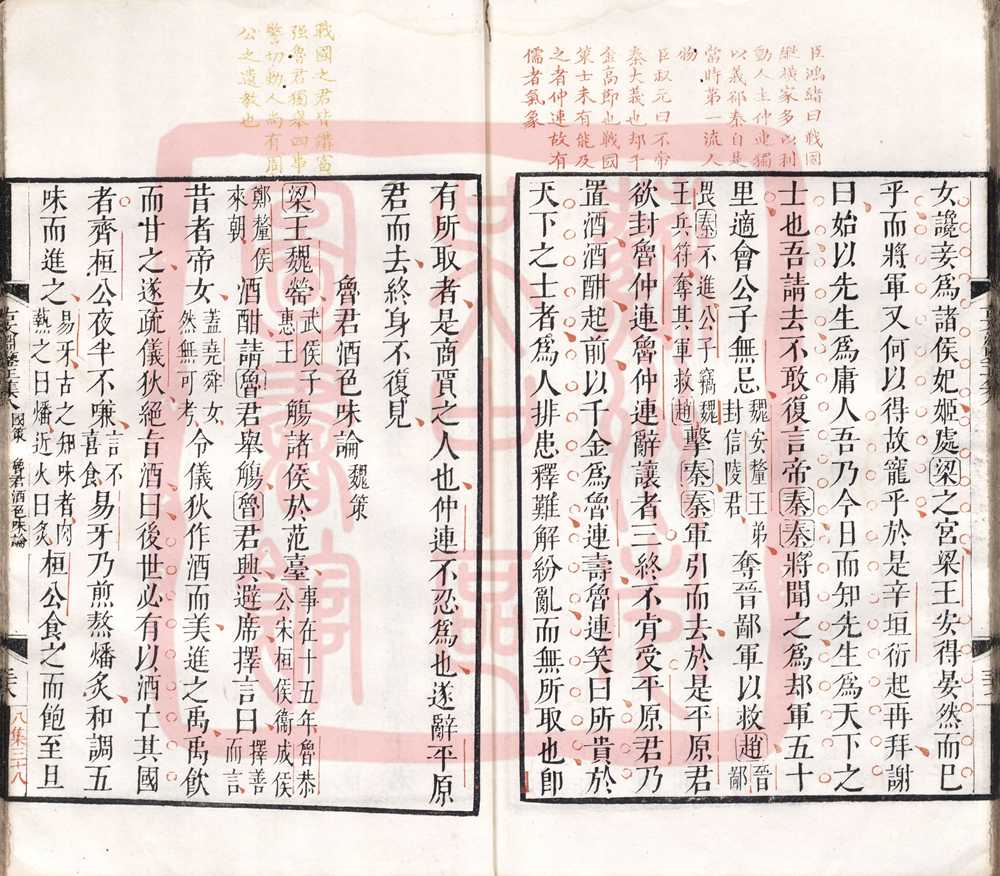 臣鴻緒曰戰國
縱橫家多以利
動人主仲連獨
以義卻秦自是
當時第一流人
物
臣叔元曰不帝
秦大義也却千
金高節也戰國
策士未有能及
之者仲連故有
儒者氣象
女讒妾爲諸侯妃姬處梁之宮梁王安得晏然而已
乎而將軍又何以得故寵乎於是辛垣衍起再拜謝
曰始以先生爲庸人吾乃今日而知先生爲天下之
士也吾請去不敢復言帝秦秦將聞之爲却軍五十
里適會公子無忌魏安釐王弟封信陵君奪晉鄙軍以救趙晉鄙
畏秦不進公子竊魏王兵符奪其軍救趙擊秦秦軍引而去於是平原君
欲封魯仲連魯仲連辭讓者三終不肯受平原君乃
置酒酒酣起前以千金爲魯連壽魯連笑曰所貴於
天下之士者爲人排患釋難解紛亂而無所取也卽
戰國之君皆講富
强魯君獨舉四事
警切動人尚有周
公之遺教也
有所取者是商賈之人也仲連不忍爲也遂辭平原
君而去終身不復見
魯君酒色味論魏策
梁王魏罃武侯子惠王觴諸侯於范臺事在十五年魯恭公宋桓侯衞成侯
鄭釐侯來朝酒酣請魯君舉觴魯君興避席擇言曰擇善而言
昔者帝女蓋堯舜女然無可考令儀狄作酒而美進之禹禹飮
而甘之遂疏儀狄絕旨酒曰後世必有以酒亡其國
者齊桓公夜半不嗛言不喜食易牙乃煎熬燔炙和調五
味而進之易牙古之知味者肉爇之曰燔近火曰炙桓公食之而飽至旦
國策 魯君酒色味論
八集三十八